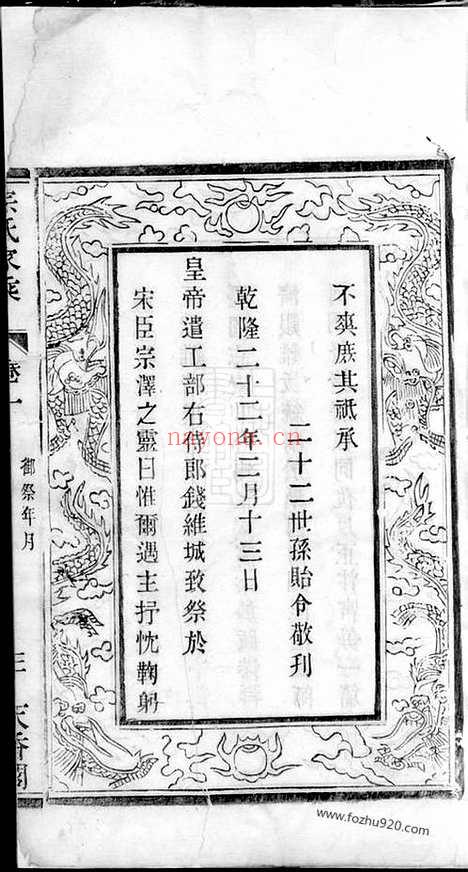 不爽庶其祗承
二十二世孫貽令敬刋
乾隆二十二年二月十三日
皇帝遣工部右侍郎錢維城致祭於
宋臣宗澤之靈曰惟爾遇主抒忱鞠躬
氏家乘
卷一
御祭年月
nayona.cn
www.fozhu920.com